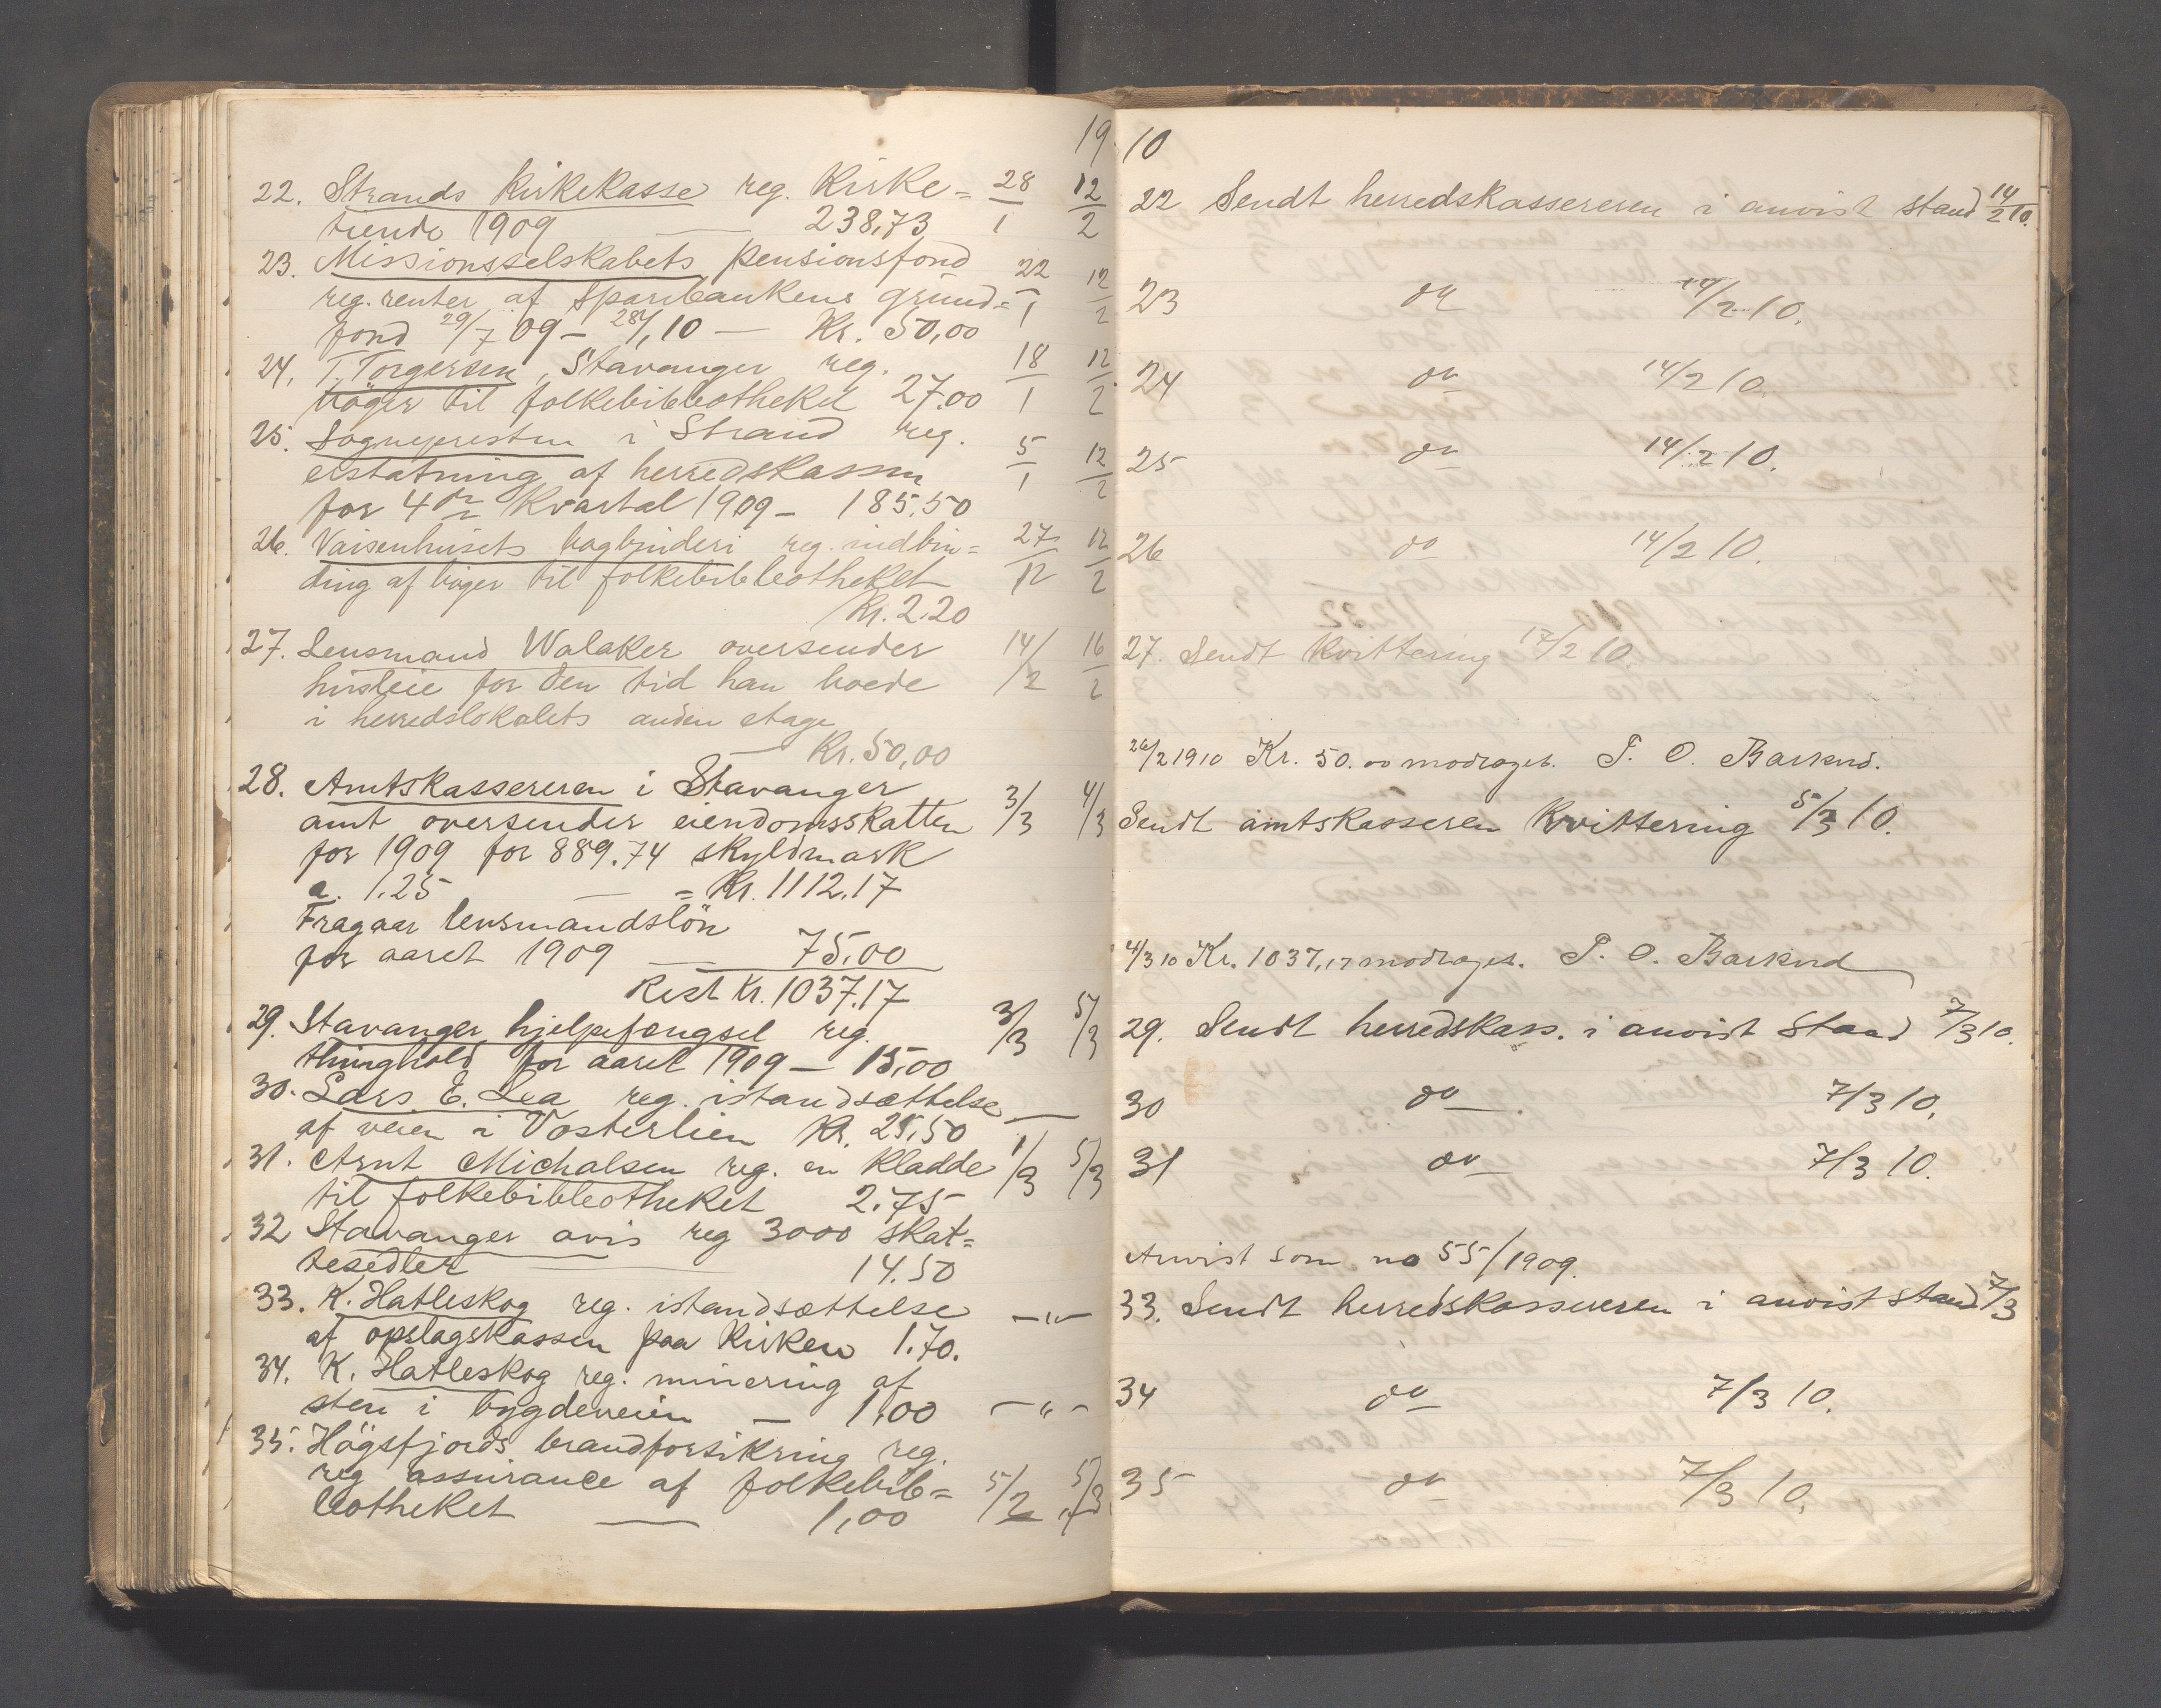 19
22. Strands Kirkekasse reg. Kirke= 28/1 12/2
tiende 1909 — 238,73
23. Missionsselskabets pensionsfond 22/1 12/2
reg. renter af Sparebankens grund=
fond 29/7 09 – 28/1 10 — Kr. 50,00
24. T. Torgersen, Stavanger reg. 18/1 12/2
böger til folkebibleotheket 27.00
25. Sognepresten i Strand reg. 5/1 12/2
erstatning af herredskassen
for 4de Kvartal 1909 – 185.50
26. Vaisenhusets bogbinderi reg. indbin= 27/12 12/2
ding af böger til folkebibleotheket
Kr. 2.20
27. Lensmand Walaker oversender 14/2 16/2
husleie for den tid han boede
i herredslokalets anden etage
— Kr. 50,00
28. Amtskassereren i Stavanger 3/3 4/3
amt oversender eiendomsskatten
for 1909 for 889.74 skyldmark
a. 1.25 — = Kr. 1112.17
Fragaar lensmandslön
for aaret 1909 — 75.00
Rest Kr. 1037.17
29. Stavanger hjelpefængsel reg. 3/3 5/3
thinghold for aaret 1909 – 15,00
30. Lars E. Lea reg. istandsættelse —
af veien i Vosterlien Kr. 25.50
31. Arnt Michalsen reg. en Kladde 1/3 5/3
til folkebibleotheket 2.75
32 Stavanger avis reg 3000 skat=
tesedler — 14.50
33. K. Hatleskog reg. istandsættelse — " —
af opslagskassen paa Kirken 1.70.
34. K. Hatleskog reg. minering af
sten i bygdeveien — 1,00 — " —
35. Högsfjords brandforsikring reg.
reg assurance af folkebib= 5/2 5/3
leotheket — 1,00
10
22 Sendt herredskassereren i anvist stand 14/2 10.
23 do 14/2 10.
24 do 14/2 10.
25 do 14/2 10.
26 do 14/2 10.
27. Sendt Kvittering 17/2 10.
26/2 1910 Kr. 50.00 modtaget. P. O. Barkved.
Sendt amtskasseren Kvittering 5/3 10.
4/3 10 Kr. 1037,17 modtaget. P. O. Barkved
29. Sendt herredskass. i anvist stand 7/3 10.
30 do 7/3 10.
31 do 7/3 10.
Anvist som no 55/1909.
33. Sendt herredskassereren i anvist stand 7/3
34 do 7/3 10.
35 do 7/3 10.